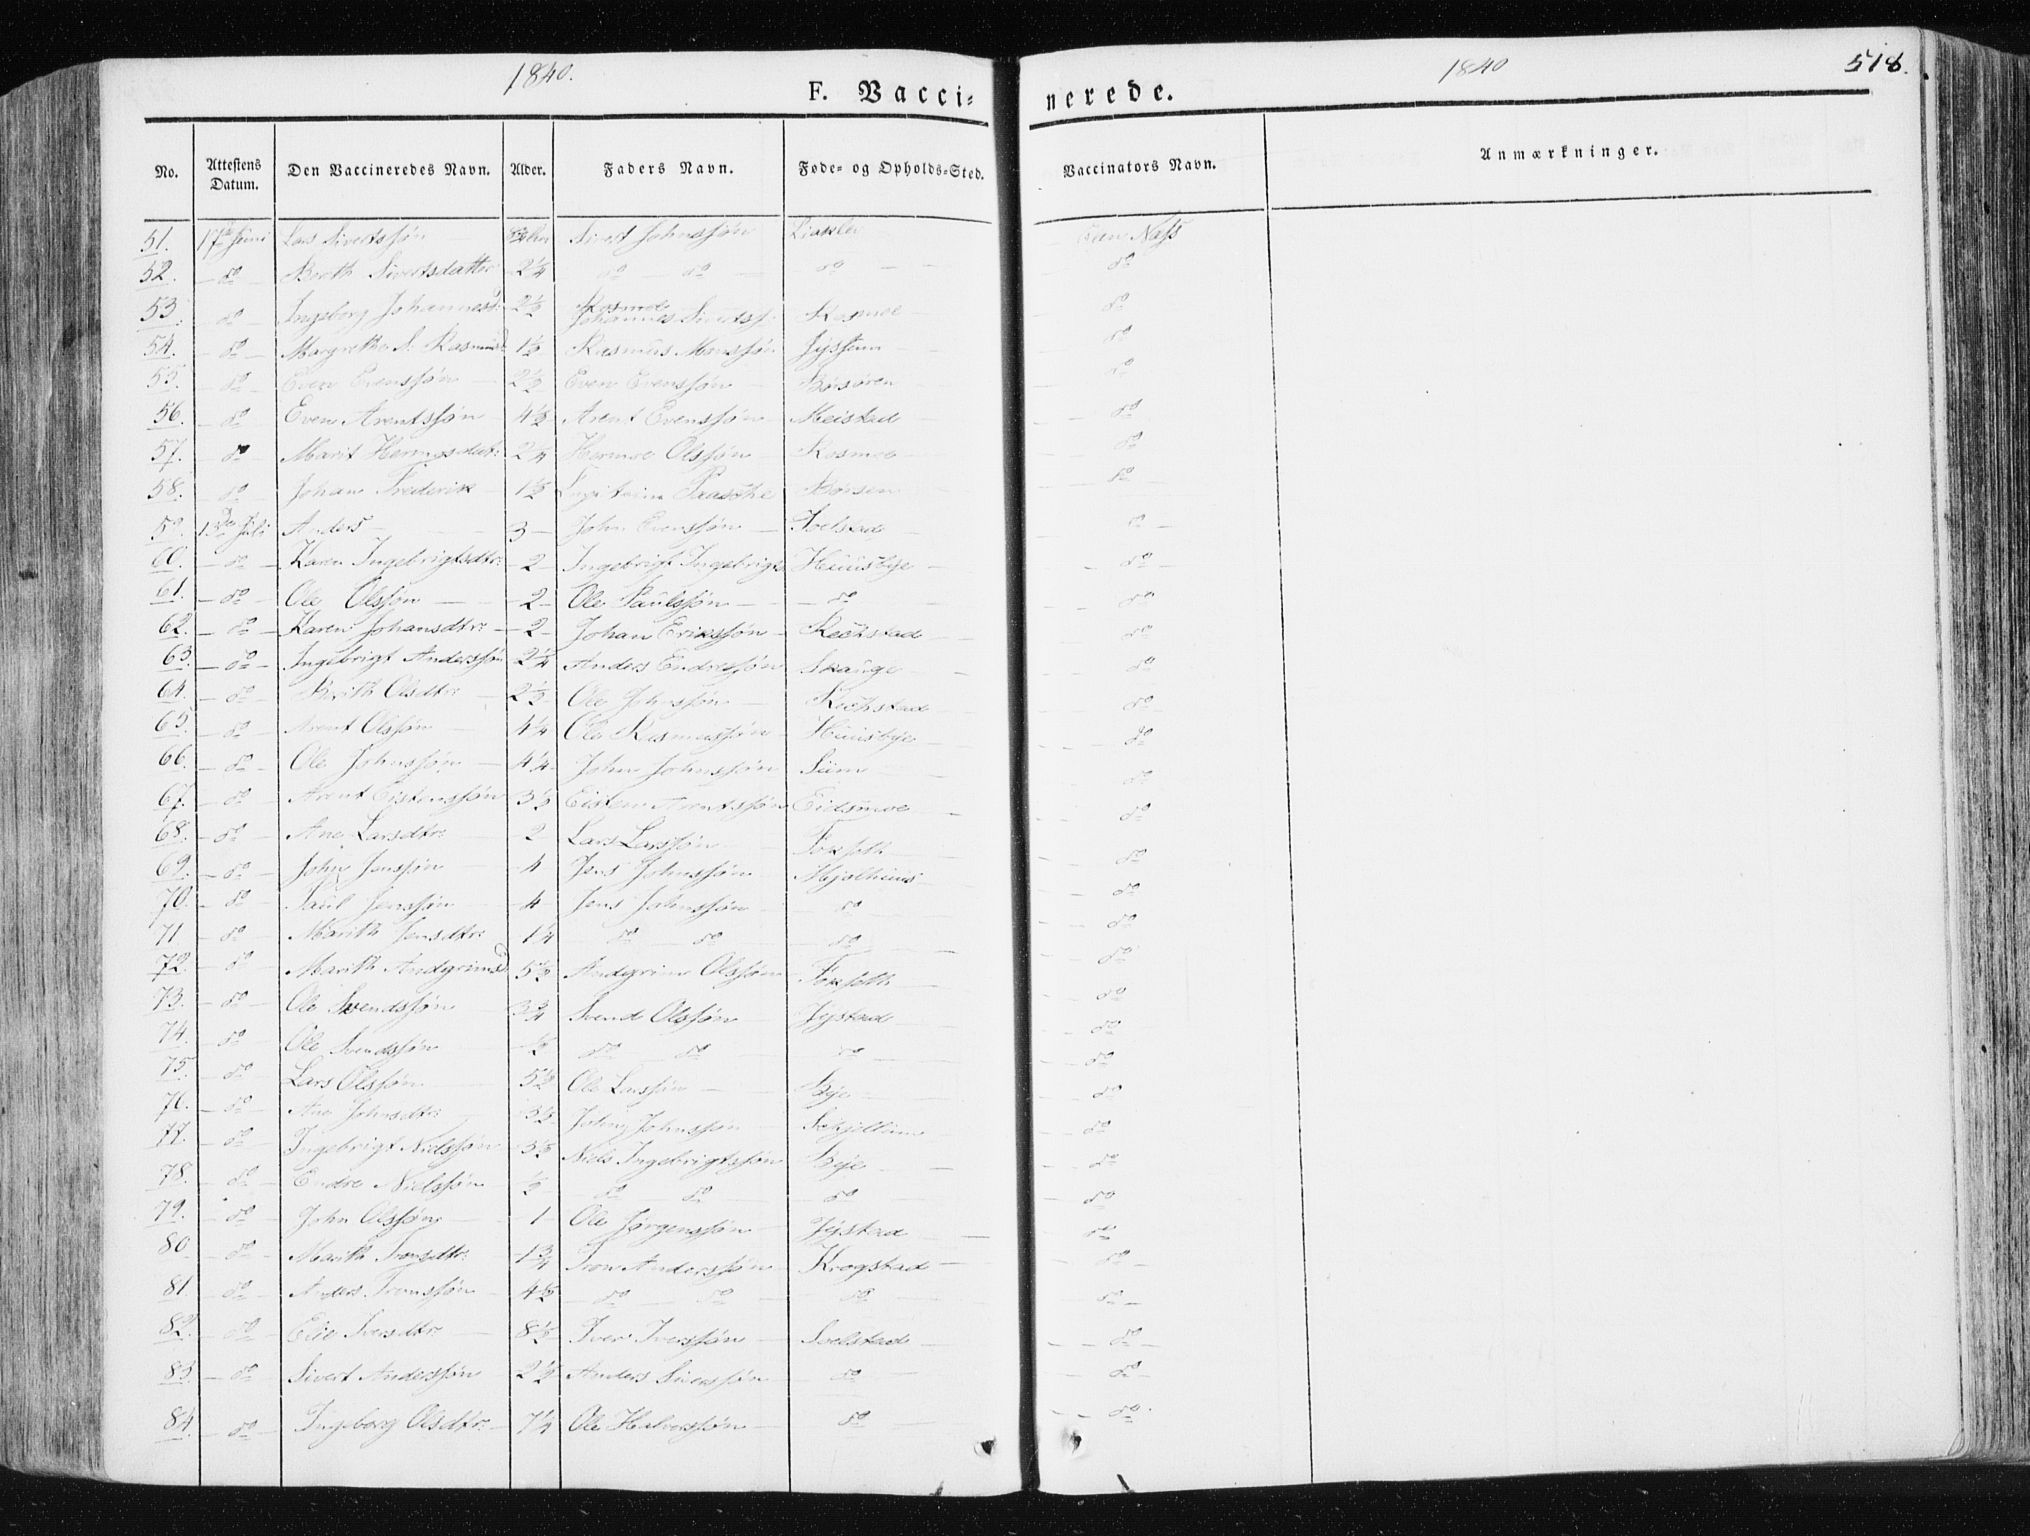 1840.
F. Vacci- nerede.
1840
518.
No. Attestens Datum. Den Vaccineredes Navn. Alder. Faders Navn. Føde- og Opholds-Sted. Vaccinators Navn. Anmærkninger.
51. 17de Juni Lars Sivertssøn Sivert Johnssøn Næss
52. do Berith Sivertsdatter 2 1/4 do do do do
53. do Ingeborg Johannesd: 2 1/2 Johannes Sivertss. Rosmoe do
54. do Margrethe S. Rasmusd 1 1/2 Rasmus Monssøn do
55. do Even Evenssøn 2 1/2 Even Evenssøn Børsøren do
56. do Even Arentssøn 4 1/2 Arent Evenssøn Meistad do
57. do Marit 2 1/4 Hermoe Olssøn Rosmoe do
58. do Johan Frederik 1 1/2 Børsen do
59. 13de Juli Anders 3 John Evenssøn Soelstad do
60. do Karen Ingebrigtsdtr: 2 Ingebrigt Ingebrigts Huusbye do
61. do Ole Olssøn 2 Ole Paulssøn do do
62. do Karen Johansdtr: 2 Johan Erikssøn do
63. do Ingebrigt Anderssøn 2 1/4 Anders Endressøn Skauge do
64. do Berith Olsdtr: 2 1/2 Ole Johnssøn do
65. do Arent Olssøn 4 1/4 Ole Rasmussøn Huusbye do
66. do Ole Johnssøn 4 1/4 John Johnssøn Siim do
67. do Arent Eistenssøn 3 1/2 Eisten Arentssøn Eidsmoe do
68. do Ane Larsdtr: 2 Lars Larssøn do
69. do John Jenssøn 4 Jens Johnssøn do
70. do Paul Jenssøn 4 Jens Johnssøn do do
71 do Marith Jensdtr: 1/4 do do do do
72. do Marith Andgrimsd 5 1/2 Andgrim Olssøn do
73. do Ole Svendssøn 3 3/4 Svend Olssøn Jystad do
74. do Ole Svendssøn 1/2 do do do do
75. do Lars Olssøn 5 1/2 Ole Larssøn Bye do
76. do Ane Johnsdtr: John Johnssøn do
77. do Ingebrigt Nielssøn 3 1/2 Niels Ingebrigtssøn Bye do
78. do Endre Nielssøn 1/2 do do do do
79. do John Olssøn 1 Ole Jørgenssøn Jystad do
80 do Marith Tronsdtr: 1 3/4 Tron Anderssøn Krogstad do
81. do Anders Tronssøn 4 1/2 do do do do
82. do Elie Iversdtr 8 1/2 Iver Iverssøn Soelstad do
83. do Sivert Anderssøn 2 1/2 Anders Siverssøn do do
84. do Ingeborg Olsdtr: 7 1/4 Ole Halverssøn do do